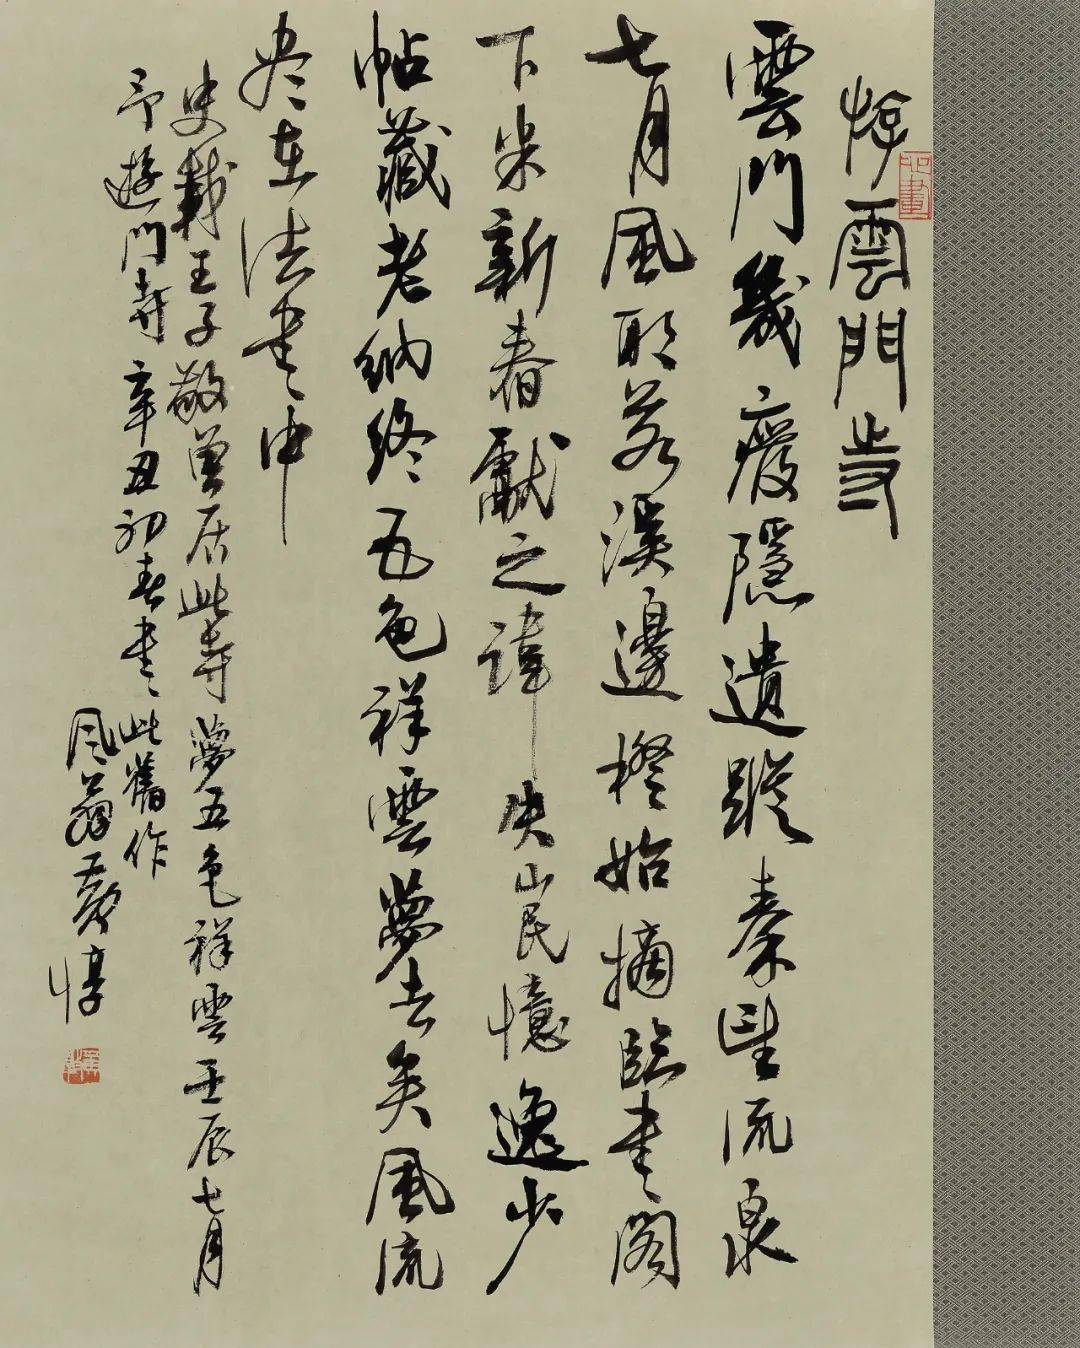 游雲門寺
雲門幾廢隱遺蹤秦望流泉
七月風耶若溪邊橙始摘臨書閣
下米新舂獻之諱失山民憶逸少
帖藏老納終五色祥雲夢去矣風流
尽在法書中
史載王子敬曾居此寺夢五色祥雲壬辰七月
予遊門寺辛丑初春書此舊作
風翁黃惇